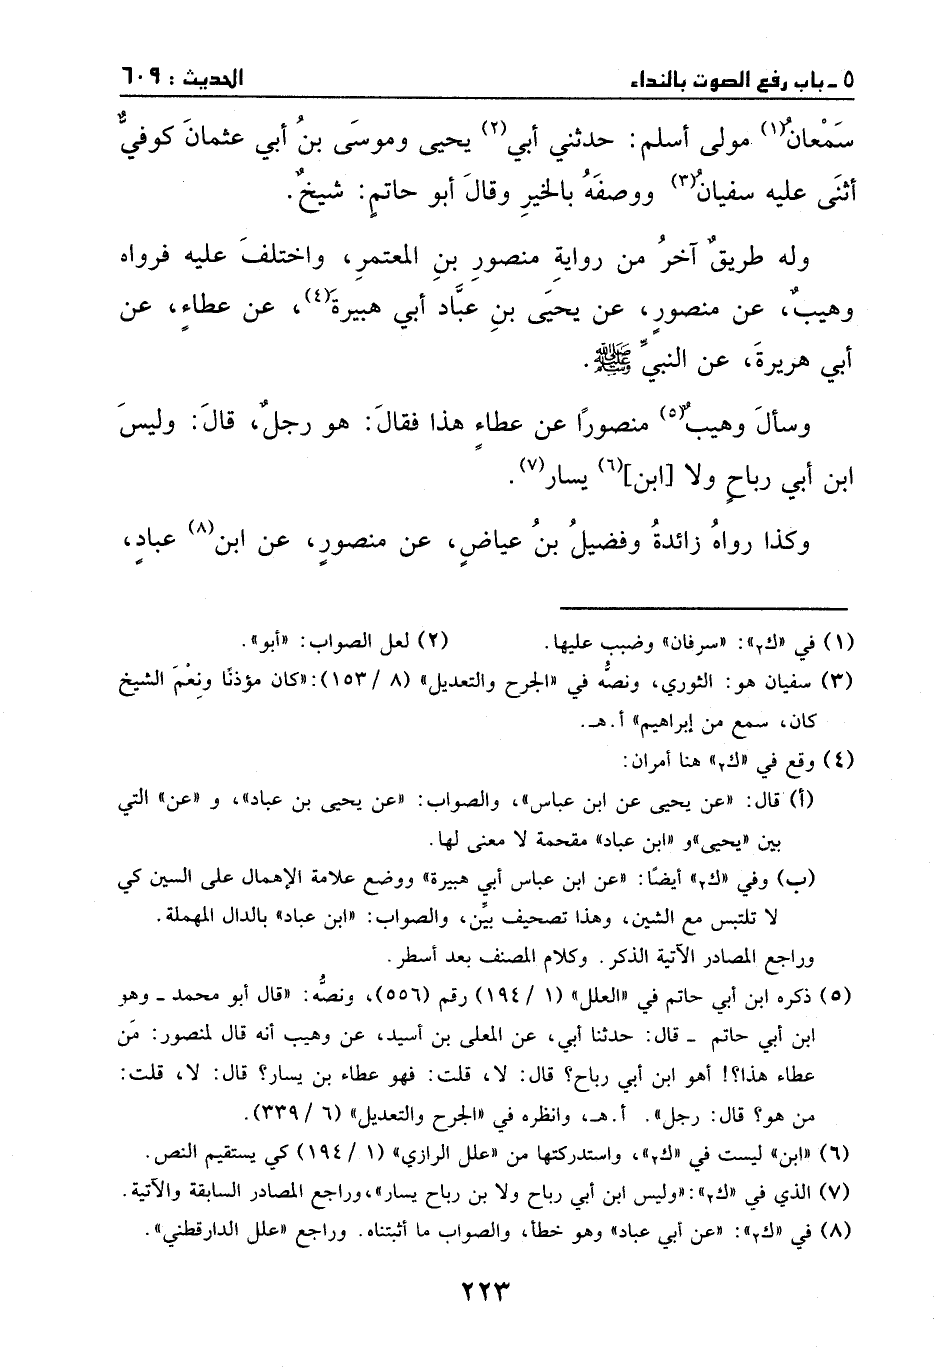 ٥ - باب رفع الصوت بالنداء الحديث : ٦٠٩
سَمْعانُ(١) مولى أسلم: حدثني أبي(٢) يحيى وموسَى بنُ أبي عثمانَ كوفيٌّ
أثنَى عليه سفيانُ(٣) ووصفَهُ بالخيرِ وقالَ أبو حاتمٍ: شيخٌ.
وله طريقٌ آخرُ من روايةِ منصورِ بنِ المعتمرِ، واختلفَ عليه فرواه
وهيبٌ، عن منصورٍ، عن يحيَى بنِ عبَّاد أبي هبيرةَ(٤)، عن عطاءٍ، عن
أبي هريرةَ، عن النبيِّ ﷺ.
وسألَ وهيبٌ(٥) منصورًا عن عطاءٍ هذا فقالَ: هو رجلٌ، قالَ: وليسَ
ابن أبي رباحٍ ولا [ابن](٦) يسار(٧).
وكذا رواهُ زائدةُ وفضيلُ بنُ عياضٍ، عن منصورٍ، عن ابن(٨) عبادٍ،
(١) في «ك٢»: «سرفان» وضبب عليها. (٢) لعل الصواب: «أبو».
(٣) سفيان هو: الثوري، ونصُّه في «الجرح والتعديل» (٨ / ١٥٣):«كان مؤذنًا ونِعْمَ الشيخ
كان، سمع من إبراهيم» أ.هـ.
(٤) وقع في «ك٢» هنا أمران:
(أ) قال: «عن يحيى عن ابن عباس»، والصواب: «عن يحيى بن عباد»، و «عن» التي
بين «يحيى»و «ابن عباد» مقحمة لا معنى لها.
(ب) وفي «ك٢» أيضًا: «عن ابن عباس أبي هبيرة» ووضع علامة الإهمال على السين كي
لا تلتبس مع الشين، وهذا تصحيف بيِّن، والصواب: «ابن عباد» بالدال المهملة.
وراجع المصادر الآتية الذكر. وكلام المصنف بعد أسطر.
(٥) ذكره ابن أبي حاتم في «العلل» (١ / ١٩٤) رقم (٥٥٦)، ونصُّه: «قال أبو محمد - وهو
ابن أبي حاتم - قال: حدثنا أبي، عن المعلى بن أسيد، عن وهيب أنه قال لمنصور: مَن
عطاء هذا؟! أهو ابن أبي رباح؟ قال: لا، قلت: فهو عطاء بن يسار؟ قال: لا، قلت:
من هو؟ قال: رجل». أ.هـ، وانظره في «الجرح والتعديل» (٦ / ٣٣٩).
(٦) «ابن» ليست في «ك٢»، واستدركتها من «علل الرازي» (١ / ١٩٤) كي يستقيم النص.
(٧) الذي في «ك٢»:«وليس ابن أبي رباح ولا بن رباح يسار»،وراجع المصادر السابقة والآتية.
(٨) في «ك٢»: «عن أبي عباد» وهو خطأ، والصواب ما أثبتناه. وراجع «علل الدارقطني».
٢٢٣